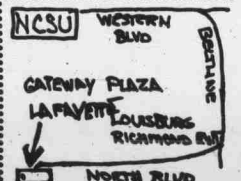 NCSU
WESTERN
BLVD
BELTLINE
GATEWAY PLAZA
LAFAYETTE
LOUISBURG
NORTH BLVD